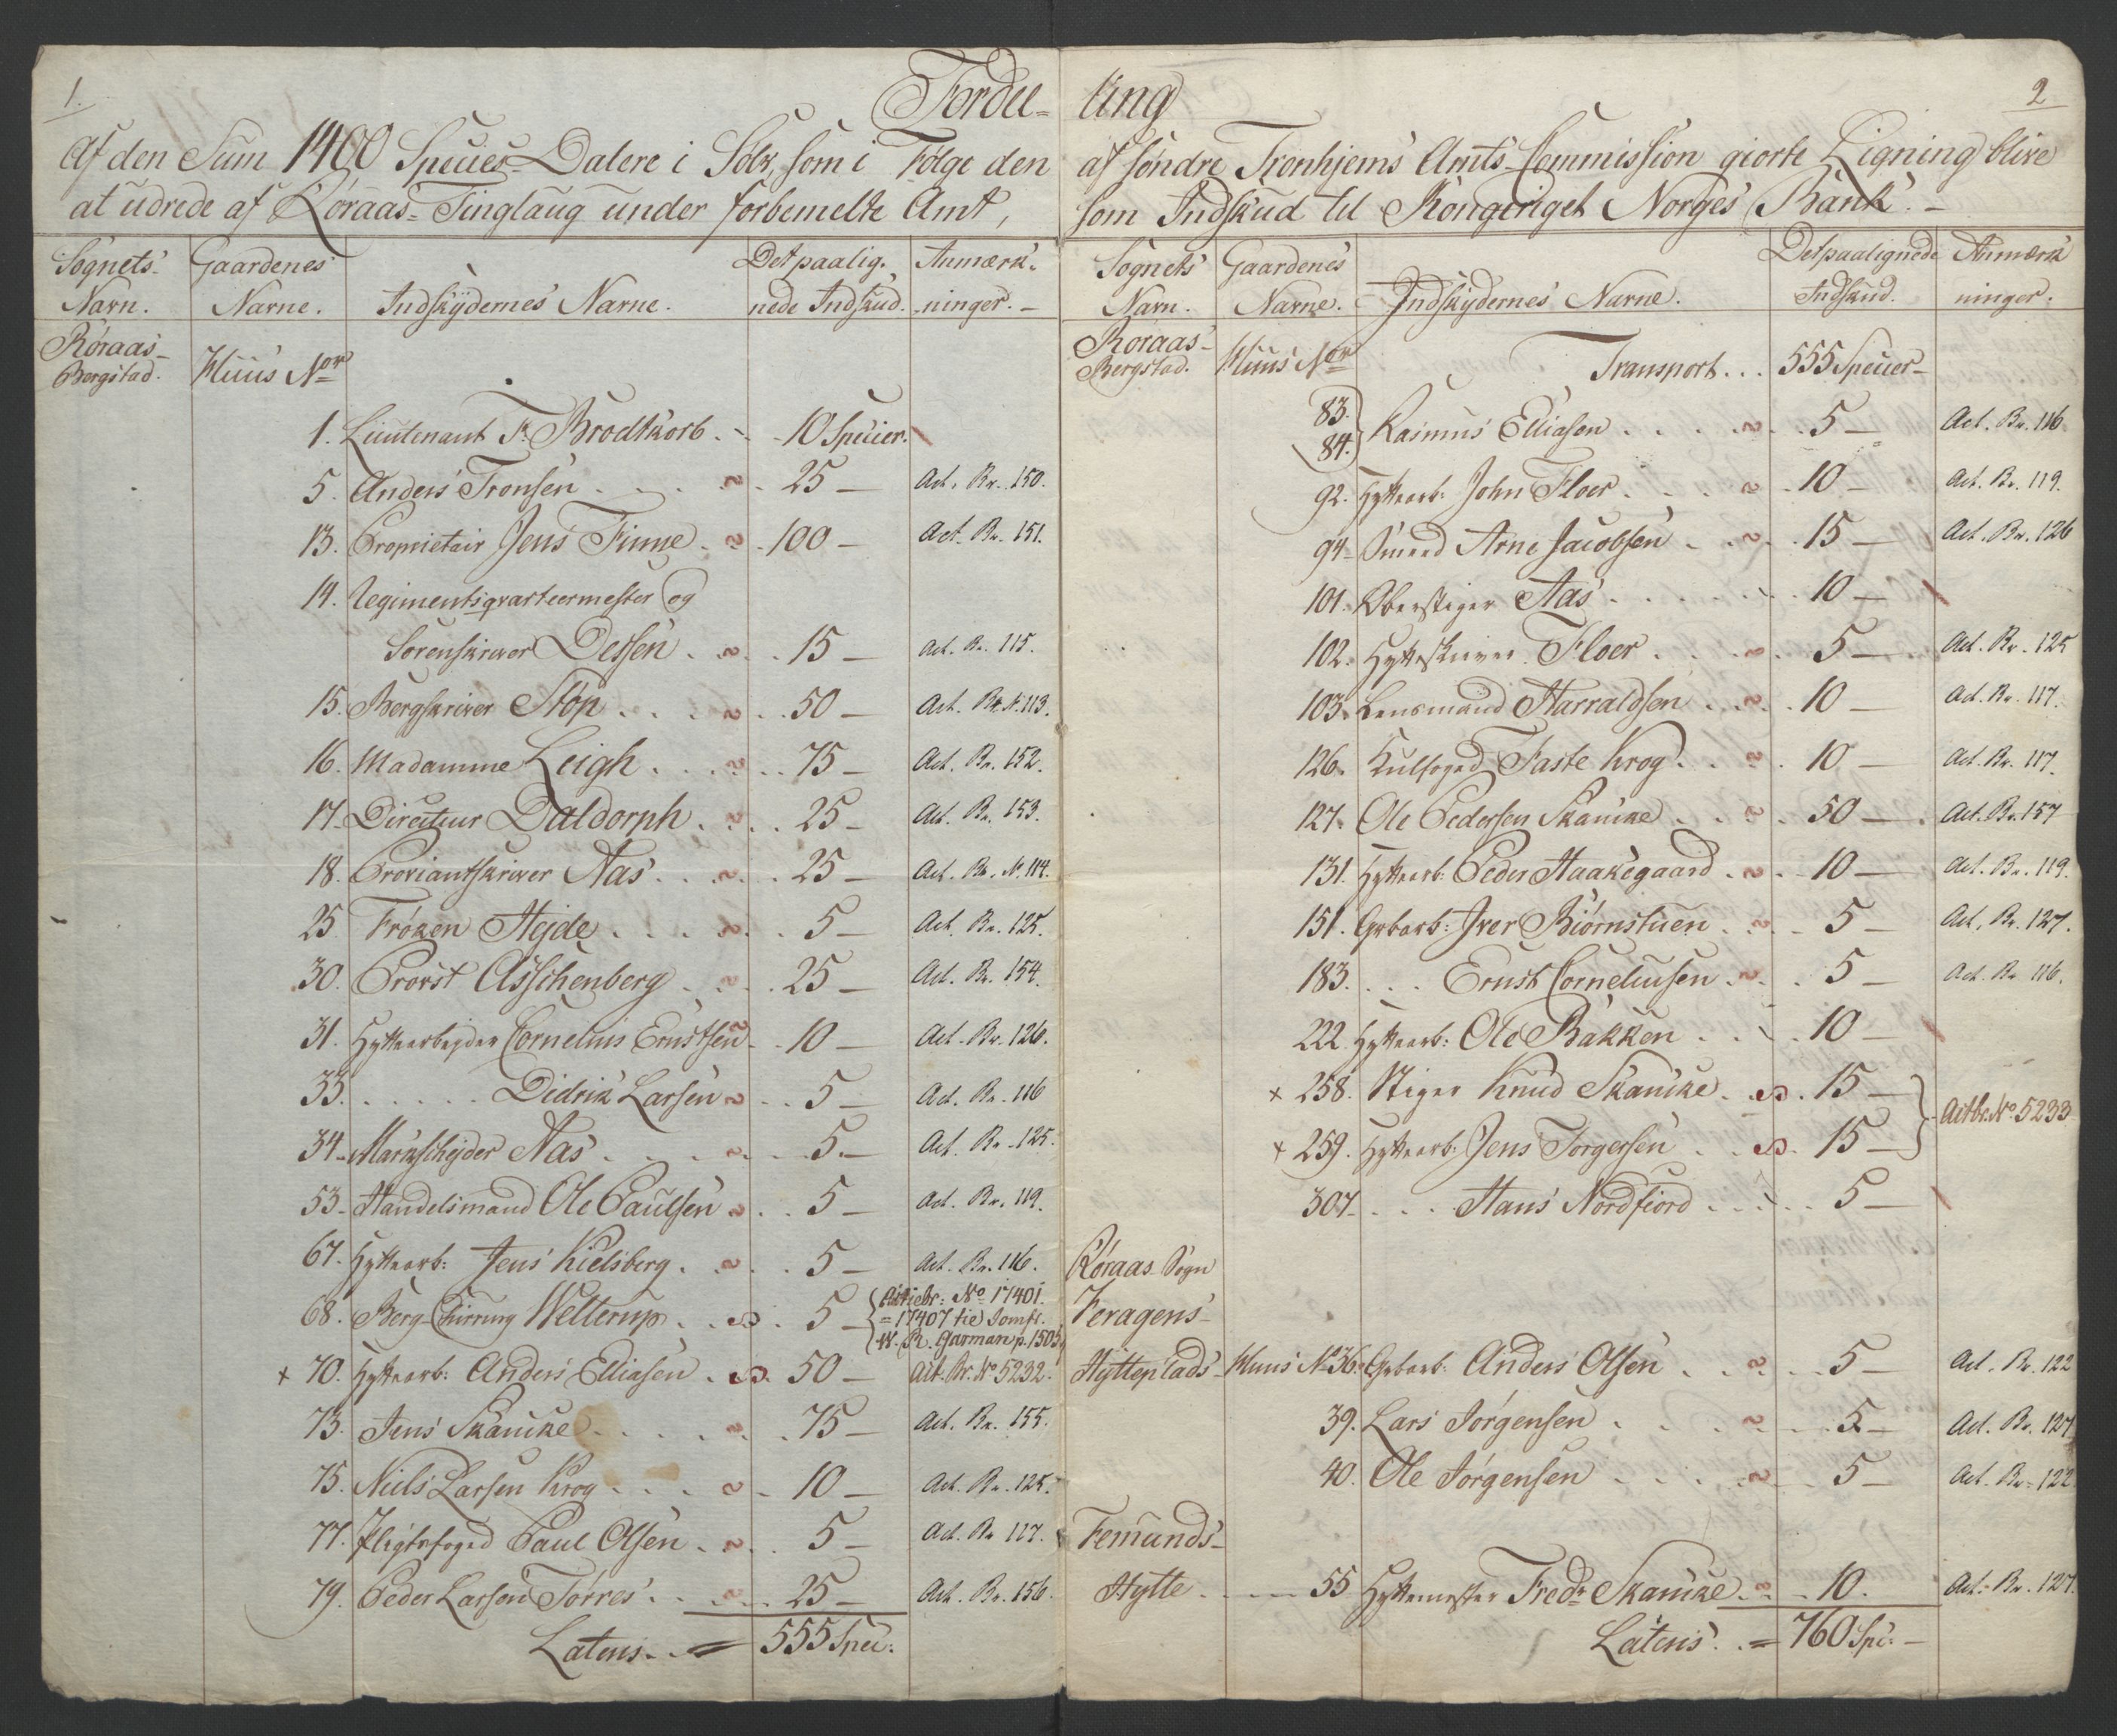 1.
Fordee-
Af den Sum 1400 Specier-Dalere i Sölv, som i Følge den
at udrede af Röraas-Tinglaug under forbemelte Amt,
Sognets-
Navn.
Gaardenes
Navne.
Indskydernes Navne.
Det paalig-
nede Indskud.
Anmærk-
ninger.-
Röraas-
Bergstad.
Huus Nor
1. Lieutenant F. Brodtkorb . - 10 Specier.
5. Anders Tronsen . . . . 25 - Act. Br. 150.
13. Proprietair Jens Finne . . 100 - Act. Br. 151.
14. Regimentsqvarteermester og
Sorenskriver Dessen . . . 15 - Act. Br. 115.
15. Bergskriver Stöp . . . . 50 - Act. Br. N. 113.
16. Madamme Leigh . . . . 75 - Act. Br. 152.
17. Directeur Daldorph . . . 25 - Act. Br. 153.
18. Proviantskriver Aas . . . 25 - Act. Br. N. 114.
25. Frøken Hejde . . . . 5 - Act. Br. 125.
30. Provst Asschenberg . . . 25 - Act. Br. 154.
31. Hyttearbejder Cornelius Ernstsen - 10 - Act. Br. 126.
33. . . . . . Didrik Larsen . . 5 - Act. Br. 116
34. Markschejder Aas . . . . 5. - Act. Br. 125.
53. Handelsmand Ole Paulsen . . 5 - Act. Br. 119.
67. Hyttearb: Jens Kielsberg . . . 5 - Act. Br. 116.
68. Berg-Chirurg Welterup . . . 5 - Actiebr: No 17401.
= 17407 til Jomfr.
R. Garman p. 1505
+ 70. Hyttearb: Anders Elliasen . . 50 - Act. Br. No 5232.
73. Jens Skancke . . . . 75 - Act. Br. 155.
75. Niels Larsen Krog . . . - 10 - Act. Br. 125.
77. Pligtsfoged Paul Olsen . . . 5 - Act. Br. 127.
79. Peder Larsen Torres . . . 25 - Act. Br. 156.
Lateris. . = 555 Spec:
2
ling
af söndre Tronhjems Amts-Commission giorte Ligning blive
som Indskud til Kongeriget Norges Bank. -
Sognets
Navn.
Gaardenes
Navne.
Indskydernes Navne.
Det paalignede
Indskud.
Anmærk
ninger.
Röraas-
Bergstad.
Huus Nor
Transport . . . 555 Specier-
83.
84. Rasmus Elliasen . . . . 5 - Act. Br. 116
92. Hyttearb: John Floer . . . . 10 - Act. Br. 119.
94. Smed Arne Jacobsen . . . 15 - Act. Br. 126
101. Oberstiger Aas . . . . . 10 -
102. Hytteskriver Floer . . . . 5 - Act. Br. 125
103. Lensmand Harraldsen . . . 10 - Act. Br. 117.
126. Kulfoged Faste Krog . . . 10 - Act. Br. 117.
127. Ole Pedersen Skancke . . . 50 - Act. Br. 157
131. Hyttearb: Peder Haakegaard . . 10 - Act. Br. 119.
151. Grbarb: Iver Biörnstuen . . . 5 - Act. Br. 127.
183. . . . Ernst Corneliusen . . . 5 - Act. Br. 116.
222. Hyttearb: Ole Bakken . . . 10 -
+ 258. Stiger Knud Skancke . . 15 -
Actbr. No 5233
+ 259. Hyttearb: Jens Torgersen . . . 15 -
307. . . . Hans Nordfiord . . . . 5 -
Röraas-Sogn
Feragens-
Hytteplads- Huus No 36. Grbarb: Anders Olsen . . . 5 - Act. Br. 122
39. Lars Jörgensen . . . . 5 - Act. Br. 127
40. Ole Jörgensen . . . . 5 - Act. Br. 122
Femunds-
Hytte . - - 55. Hyttemester Fredr Skancke . - 10. Act. Br. 127.
Lateris . . = 760 Spe: -